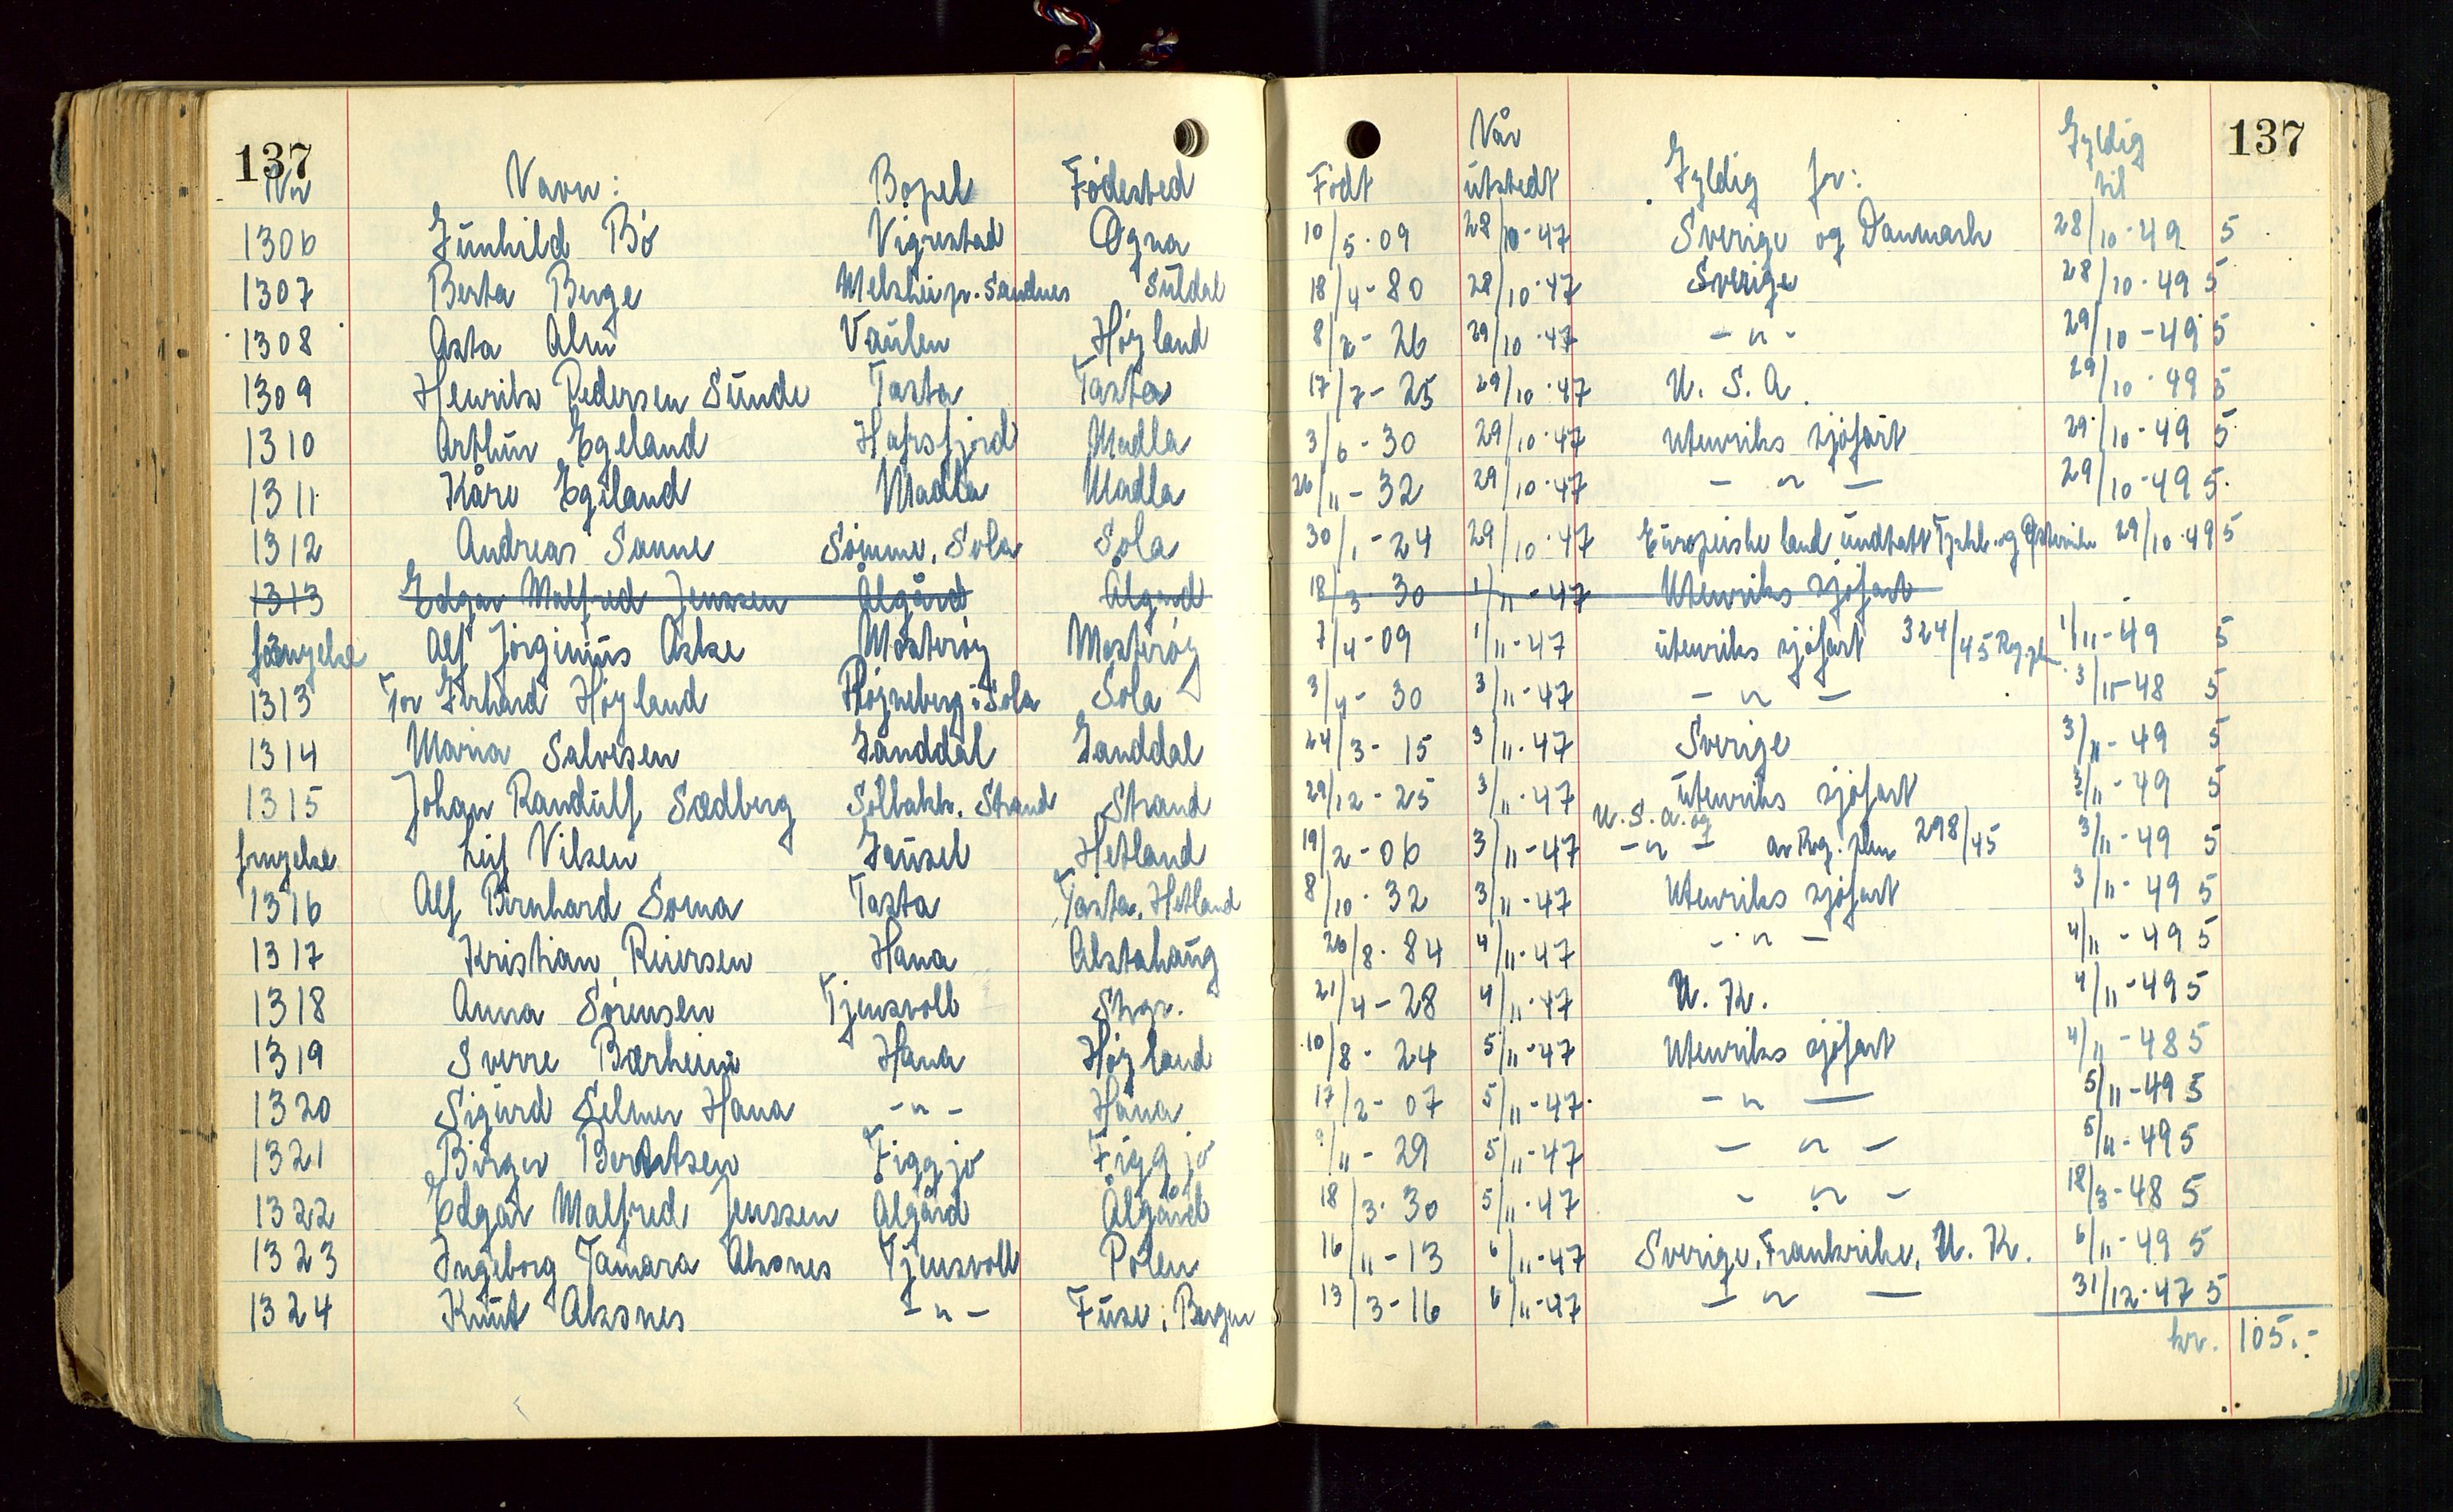 137 137
Når Gyldig
Nr Navn: Bopel Födested Födt utstedt Gyldig for: til
1306 Gunhild Bö Vigrestad Ogna 10/5-09 28/10-47 Sverige og Danmark 28/10-49 5
1307 Berta Berge Melshei pr. Sandnes Suldal 18/4-80 28/10-47 Sverige 28/10-49 5
1308 Asta Vaulen Höyland 8/2-26 29/10-47 -"- 29/10-49 5
1309 Henrik Pedersen Sunde Tasta Tasta 17/7-25 29/10-47 U.S.A. 29/10-49 5
1310 Arthur Egeland Hafrsfjord Madla 3/6-30 29/10-47 Utenriks sjöfart 29/10-49 5
1311 Kåre Egeland Madla Madla 26/11-32 29/10-47 -"- 29/10-49 5
1312 Andreas Sanne Sömme, Sola Sola 30/1-24 29/10-47 Europeiske land undtatt Tyskl. og Östrike 29/10-49 5
1313 Edgar Malfred Jenssen Ålgård Ålgård 18/3-30 1/11-47 Utenriks sjöfart
fornyelse Alf Jörginius Aske Mosteröy Mosteröy 7/4-09 1/11-47 utenriks sjöfart 324/45 Rog. 1/11-49 5
1313 Tor Gerhard Höyland Röyneberg i Sola Sola 3/4-30 3/11-47 -"- 3/11-48 5
1314 Maria Salvesen Ganddal Ganddal 24/3-15 3/11-47 Sverige 3/11-49 5
1315 Johan Randulf Sædberg Solbakk. Strand Strand 29/12-25 3/11-47 utenriks sjöfart 3/11-49 5
U.S.A. og
fornyelse Leif Vilsen Gausel Hetland 19/2-06 3/11-47 -"- av Rog. 298/45 3/11-49 5
1316 Alf Bernhard Soma Tasta Tasta, Hetland 8/10-32 3/11-47 Utenriks sjöfart 3/11-49 5
1317 Kristian Reiersen Hana Alstahaug 26/8-84 4/11-47 -"- 4/11-49 5
1318 Anna Sörensen Tjensvoll Stvgr. 21/4-28 4/11-47 U.K. 4/11-49 5
1319 Sverre Bærheim Hana Höyland 10/8-24 5/11-47 Utenriks sjöfart 4/11-48 5
1320 Sigurd Selmer Hana -"- Hana 17/2-07 5/11-47 -"- 5/11-49 5
1321 Birger Berntsen Figgjo Figgjo 9/11-29 5/11-47 -"- 5/11-49 5
1322 Edgar Malfred Jenssen Ålgård Ålgård 18/3-30 5/11-47 -"- 18/3-48 5
1323 Ingeborg Tamara Aksnes Tjensvoll Polen 16/11-13 6/11-47 Sverige, Frankrike, U.K. 6/11-49 5
1324 Knut Aksnes -"- Fuse i Bergen 13/3-16 6/11-47 -"- 31/12-47 5
kr. 105.-